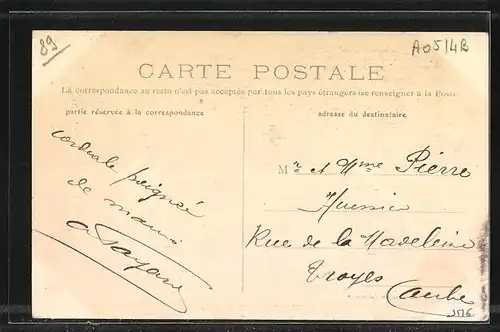 89
A0514B
CARTE POSTALE
La correspondance au recto n'est pas acceptée par tous les pays étrangers (se renseigner a la Poste
partie réservée à la correspondance
adresse du destinataire
cordiale poignée
de main
Mr et Mme Pierre
Huissier
Rue de la Madeleine
Troyes
(Aube